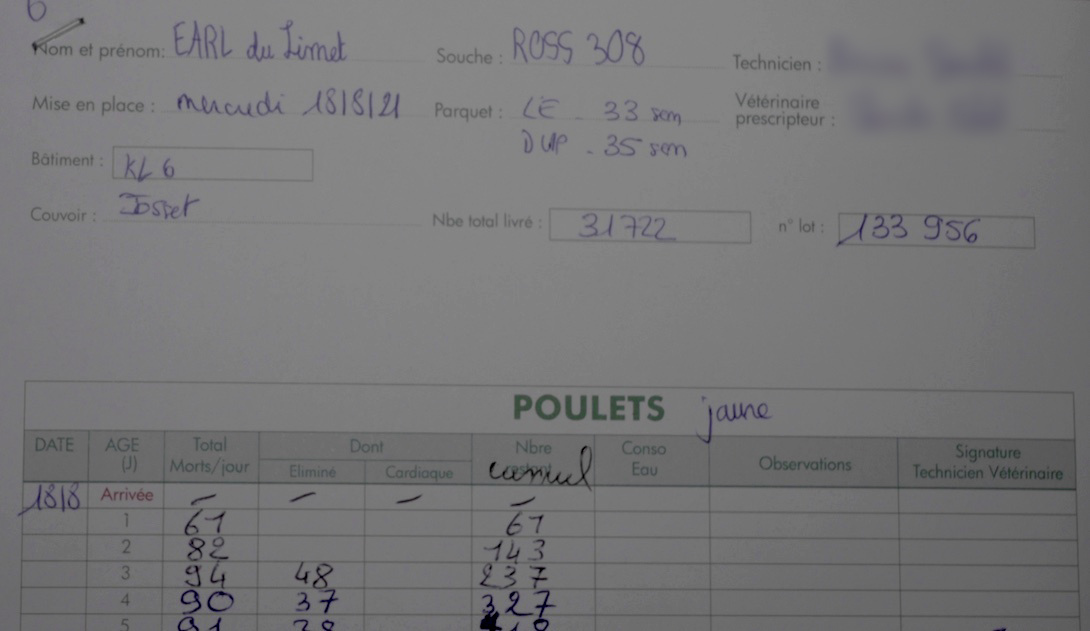 6
Nom et prénom: EARL du Limet Souche : ROSS 308 Technicien :
Mise en place : mercredi 18/8/21 Parquet : LE - 33 sem Vétérinaire prescripteur :
DUP - 35 sem
Bâtiment : KL 6
Couvoir : Josset Nbe total livré : 31722 n° lot : 133 956
POULETS jaune
DATE AGE (J) Total Morts/jour Dont Eliminé Cardiaque Nbre cumul Conso Eau Observations Signature Technicien Vétérinaire
18/8 Arrivée - - - -
1 61 61
2 82 143
3 94 48 237
4 90 37 327
5 91